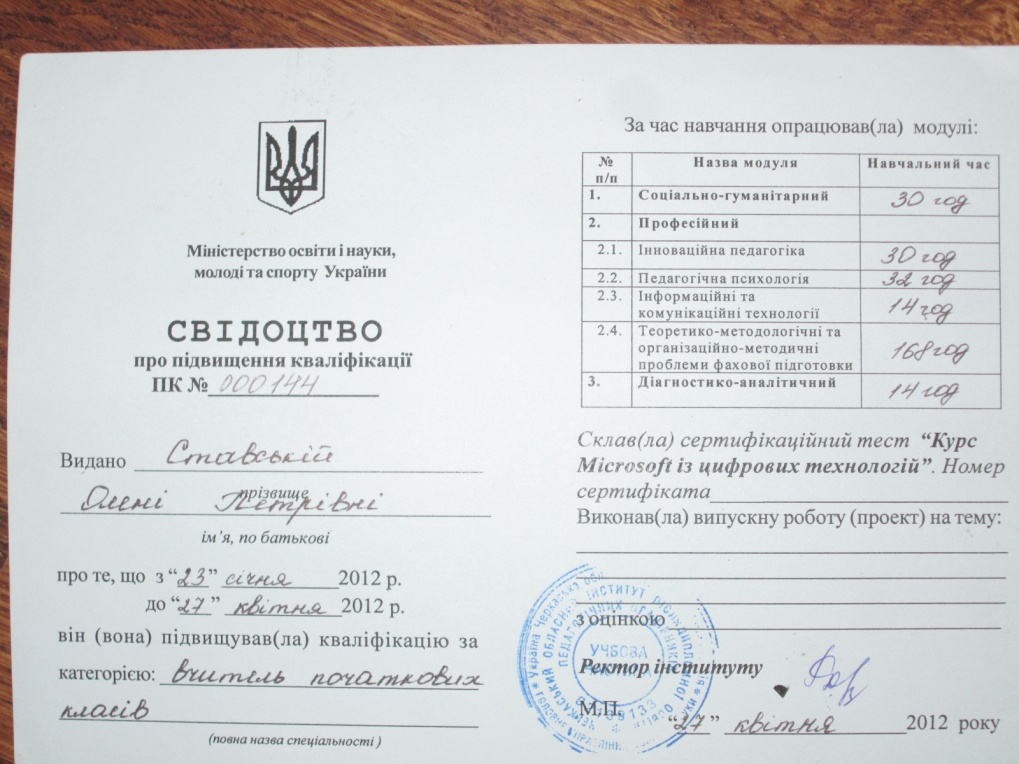 Міністерство освіти і науки,
молоді та спорту України
СВІДОЦТВО
про підвищення кваліфікації
ПК № 000144
Видано Ставській
прізвище
Олені Петрівні
ім’я, по батькові
про те, що з “23” січня 2012 р.
до “27” квітня 2012 р.
він (вона) підвищував(ла) кваліфікацію за
категорією: вчитель початкових
класів
(повна назва спеціальності )
За час навчання опрацював(ла) модулі:
№ п/п Назва модуля Навчальний час
1. Соціально-гуманітарний 30 год
2. Професійний
2.1. Інноваційна педагогіка 30 год
2.2. Педагогічна психологія 32 год
2.3. Інформаційні та
комунікаційні технології 14 год
2.4. Теоретико-методологічні та
організаційно-методичні 168 год
проблеми фахової підготовки
3. Діагностико-аналітичний 14 год
Склав(ла) сертифікаційний тест “Курс
Microsoft із цифрових технологій”. Номер
сертифіката
Виконав(ла) випускну роботу (проект) на тему:
з оцінкою
Ректор інституту
М.П.
“27” квітня 2012 року
Україна Черкаська
ОБЛАСНИЙ ІНСТИТУТ ПІСЛЯДИПЛОМНОЇ
ПЕДАГОГІЧНИХ
УЧБОВА